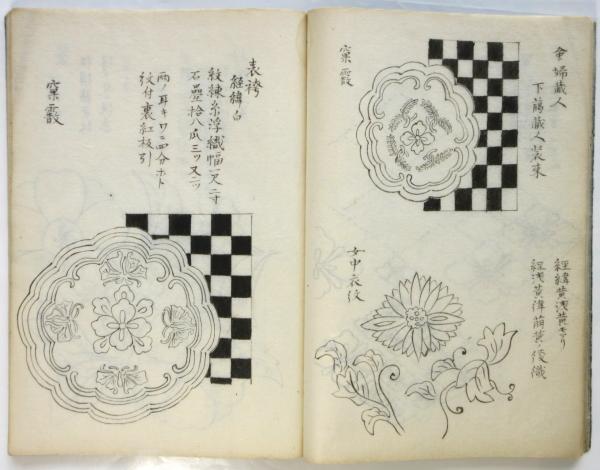 命婦蔵人
下﨟蔵人装束
窠霰
経緯黄浅黄モアリ
経浅黄緯萌黄ノ綾織
女中衣紋
表袴
経緯白
紋練糸浮織幅一尺二寸
石畳拾八瓜三ツ又二ツ
両ノ耳キワニ四分ホト
紋付裏紅板引
窠霰